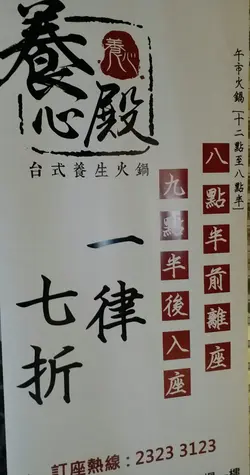 養心殿
養心
台式養生火鍋
午市火鍋[十二點至八點半]
八點半前離座
九點半後入座
一律
七折
訂座熱線:2323 3123